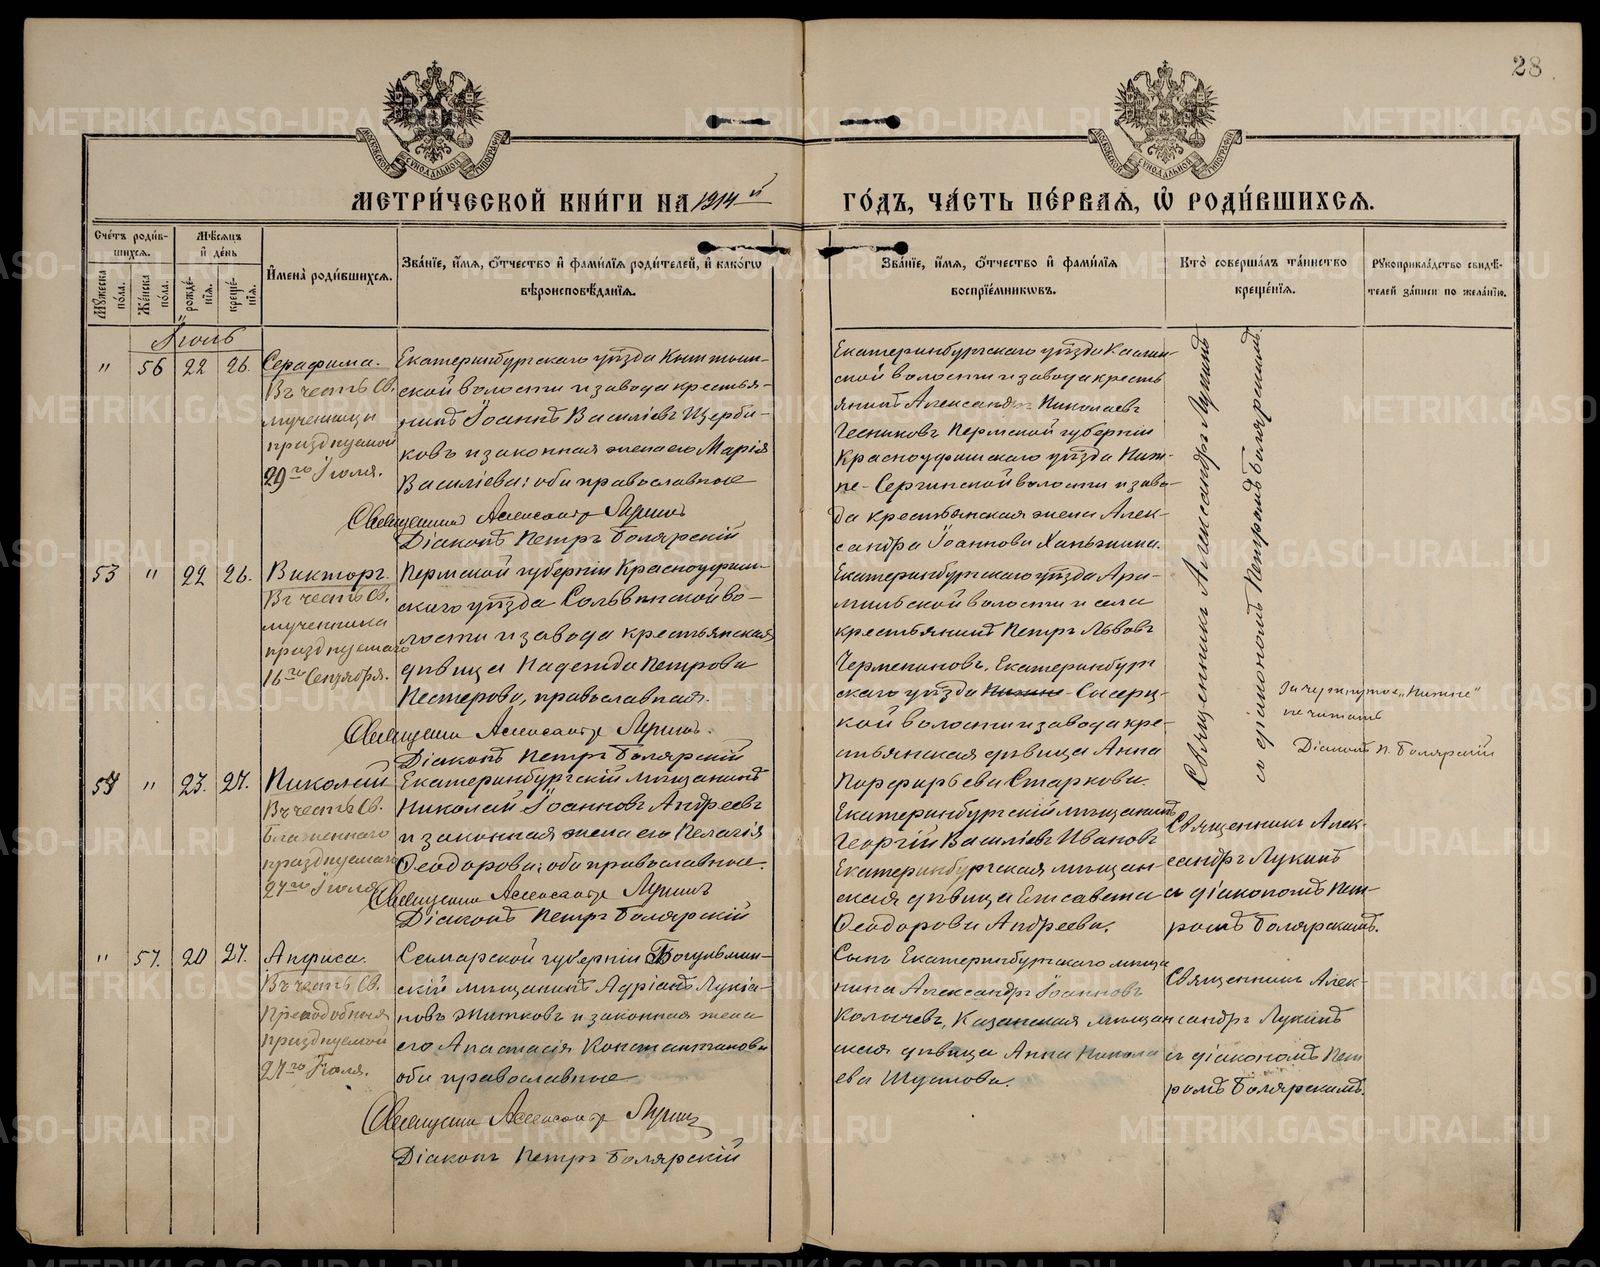 28
МЕТРИ́ЧЕСКОЙ КНИ́ГИ НА 1914 й ГО́ДЪ, ЧА́СТЬ ПЕ́РВАЯ, Ѡ҆ РОДИ́ВШИХСЯ.
Сче́тъ роди́в-
шихся.
Мѣ́сяцъ
и҆ де́нь
Мꙋ́жеска по́ла.
Же́нска по́ла.
рожде́нія.
креще́нія.
И҆мена̀ роди́вшихся.
Зва́ніе, и҆́мя, ѻ҆́тчество и҆ фами́лія роди́телей, и҆ како́гѡ
вѣроисповѣ́данія.
Зва́ніе, и҆́мя, ѻ҆́тчество и҆ фами́лія
воспріе́мникѡвъ.
Кто̀ соверша́лъ та́инство
креще́нія.
Рꙋкоприкла́дство свидѣ́-
телей за́писи по жела́нію.
Іюль
" 56 22 26.
Серафима.
Въ честь Св.
мученицы
празднуемой
29го Іюля.
Екатеринбургскаго уѣзда Кыштым-
ской волости и завода крестья-
нинъ Іоаннъ Василіевъ Щерба-
ковъ и законная жена его Марія
Василіева; оба православные
Священникъ Александр Лукинъ
Діаконъ Петръ Болярскій
Екатеринбургскаго уѣзда Каслин-
ской волости и завода кресть
янинъ Александръ Николаевъ
Пермской губерніи
Красноуфимскаго уѣзда Ниж-
не-Сергинской волости и заво-
да крестьянская жена Алек-
сандра Іоаннова
Священникъ Александръ Лукинъ
съ діакономъ Петромъ Болярскимъ.
53 " 22 26.
Викторъ.
Въ честь Св.
мученика
празднуемаго
16го Сентября.
Пермской губерніи Красноуфим-
скаго уѣзда
лости и завода крестьянская
дѣвица Надежда Петрова
Нестерова, православная.
Священникъ Александр Лукинъ.
Діаконъ Петръ Болярскій
Екатеринбургскаго уѣзда Ара-
мильской волости и села
крестьянинъ Петръ Львовъ
Екатеринбург
скаго уѣзда Нижне-Сысерт-
кой волости и завода кре-
стьянская дѣвица Анна
Порфирьева Старкова.
Зачеркнутое "Нижне"
не читать
Діаконъ П. Болярскій
54 " 23. 27.
Николай
Въ честь Св.
блаженнаго
празднуемаго
27го Іюля
Екатеринбургскій мѣщанинъ
Николай Іоанновъ Андреевъ
и законная жена его Пелагія
Ѳеодорова; оба православные.
Священникъ Александр Лукинъ
Діаконъ Петръ Болярскій
Екатеринбургскій мѣщанинъ
Георгій Василіевъ Ивановъ
Екатеринбургская мѣщан-
ская дѣвица Елисавета
Ѳеодорова Андреева.
Священникъ Алек-
сандръ Лукинъ
съ діакономъ Пет-
ромъ Болярскимъ.
" 57. 20 27.
Анфиса.
Въ честь Св.
Преподобныя
празднуемой
27го Іюля.
Самарской губерніи Бугульмин-
скій мѣщанинъ Адріанъ Лукіа-
новъ Житковъ и законная жена
его Анастасія Константинова
оба православные
Священникъ Александр Лукинъ
Діаконъ Петръ Болярскій
Сынъ Екатеринбургскаго мѣща
нина Александръ Іоанновъ
Колычевъ, Казанская мѣщан
ская дѣвица Анна Никола
ева
Священникъ Алек-
сандръ Лукинъ
съ діакономъ Пет
ромъ Болярскимъ.
METRIKI.GASO-URAL.RU